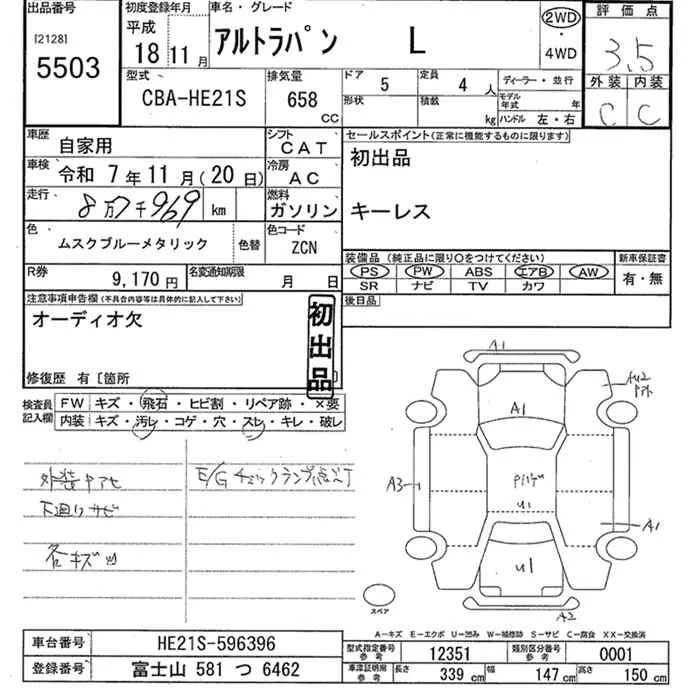 出品番号
[2128]
5503
初度登録年月
平成
18 11月
車名・グレード
アルトラパン L
2WD
・
4WD
評価点
3.5
外装 内装
C C
型式
CBA-HE21S
排気量
658 CC
ドア 5
定員 4 人
形状
積載 kg
ディーラー・並行
モデル年式 年
ハンドル 左・右
車歴 自家用
シフト CAT
車検 令和 7年11月(20日)
冷房 AC
走行 8万7千969 km
燃料 ガソリン
色 ムスクブルーメタリック 色替
色コード ZCN
R券 9,170円
名変通知期限 月 日
セールスポイント(正常に機能するものに限ります)
初出品
キーレス
装備品(純正品に限り○をつけてください)
PS PW ABS エアB AW
SR ナビ TV カワ
新車保証書
有・無
後日品
注意事項申告欄(不具合内容等は具体的に記入して下さい)
オーディオ欠
初出品
修復歴 有〔箇所 〕
検査員記入欄
FW キズ・飛石・ヒビ割・リペア跡・×要
内装 キズ・汚レ・コゲ・穴・スレ・キレ・破レ
外装ヤアセ
下廻りサビ
各キズ凹
E/Gチェックランプ点灯
A1
A1
A3
U1
A1
U1
A2
スペア
A-キズ E-エクボ U-凹み W-補修跡 S-サビ C-腐食 XX-交換済
車台番号 HE21S-596396
登録番号 富士山 581 つ 6462
型式指定番号 参考 12351
類別区分番号 参考 0001
車津証明用 参考 長さ 339 cm 幅 147 cm 高さ 150 cm